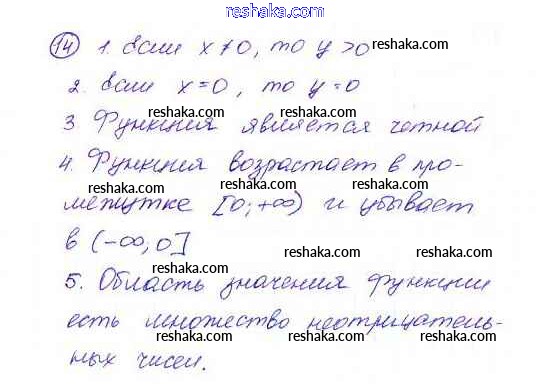 reshaka.com
14 1. Если x ≠ 0, то y > 0
reshaka.com
2. Если x = 0, то y = 0
reshaka.com reshaka.com
3 Функция является четной
reshaka.com
4. Функция возрастает в про-
reshaka.com reshaka.com
межутке [0; +∞) и убывает
reshaka.com
в (-∞, 0]
reshaka.com reshaka.com
5. Область значения функции
reshaka.com
есть множество неотрицатель-
reshaka.com reshaka.com
ных чисел.
reshaka.com